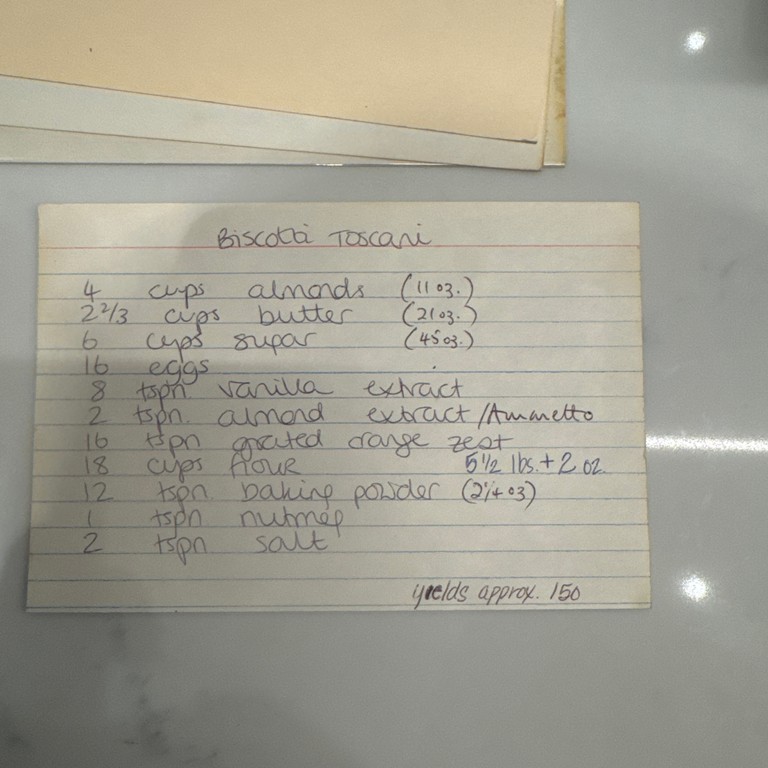 Biscotti Toscani
4 cups almonds (11 oz.)
2 2/3 cups butter (21 oz.)
6 cups sugar (45 oz.)
16 eggs
8 tspn. vanilla extract
2 tspn. almond extract/Ammaretto
16 tspn grated orange zest
18 cups flour 5 1/2 lbs. + 2 oz.
12 tspn. baking powder (2 1/4 oz)
1 tspn nutmeg
2 tspn salt
yields approx. 150